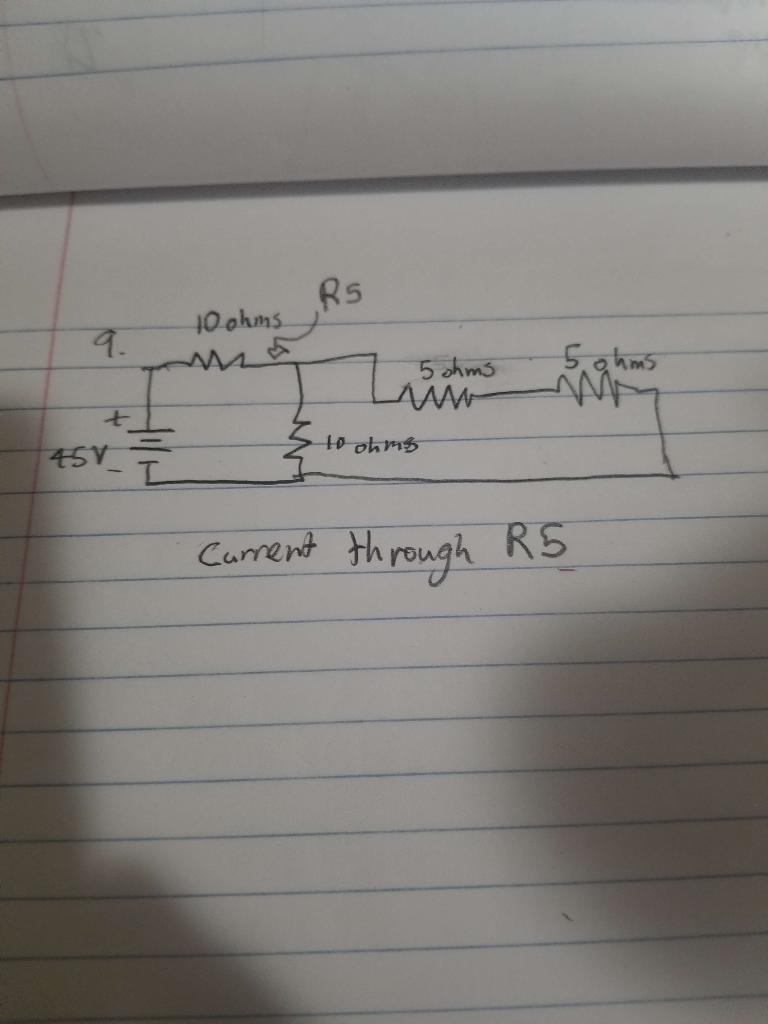 R5
10 ohms
9.
5 ohms
5 ohms
+
45V
-
10 ohms
Current through R5